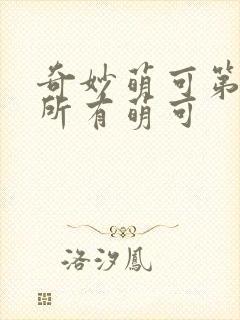 奇妙萌可第
所有萌可
洛汐鳳